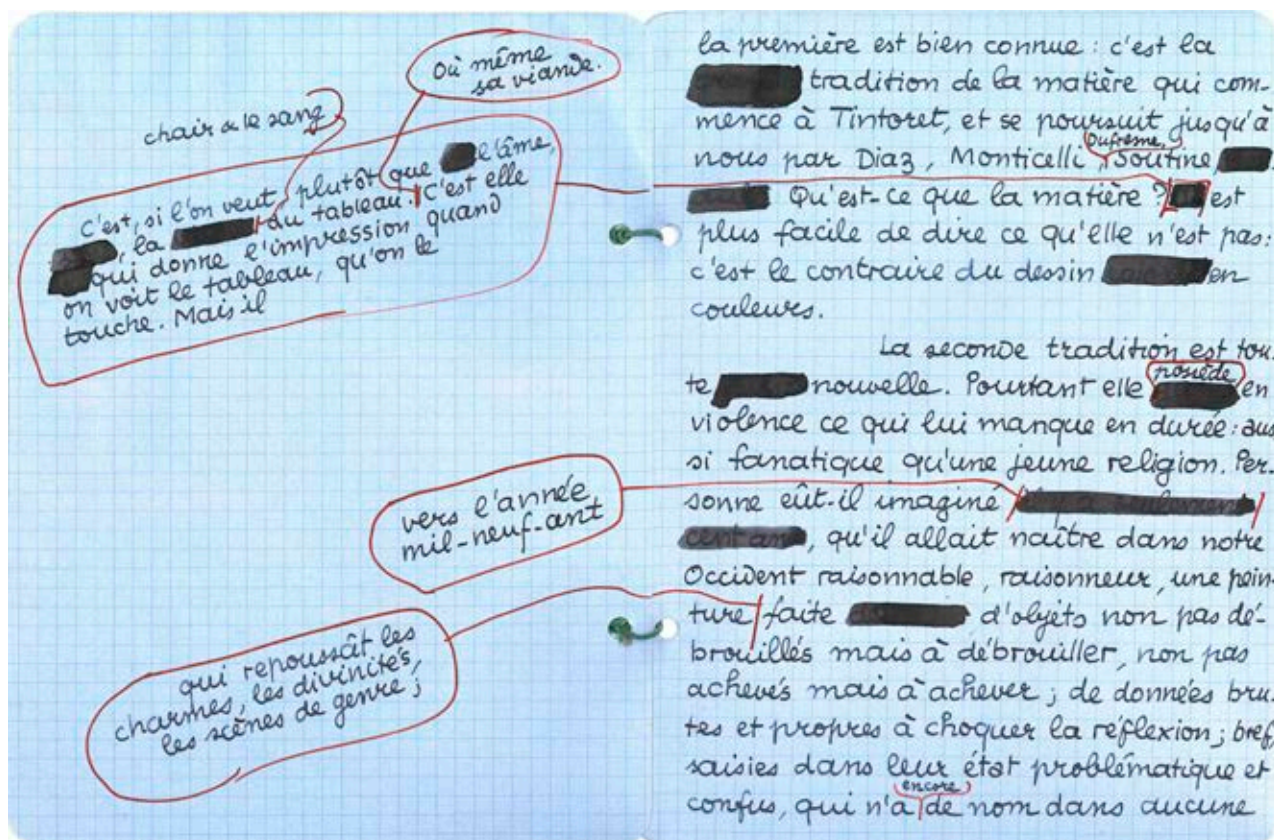 Où même
sa viande.
chair & le sang
C'est, si l'on veut, plutôt que l'âme,
, la du tableau. C'est elle
qui donne l'impression, quand
on voit le tableau, qu'on le
touche. Mais il
vers l'année
mil-neuf-cent
qui repoussât les
charmes, les divinités,
les scènes de genre;
la première est bien connue : c'est la
tradition de la matière qui com-
mence à Tintoret, et se poursuit jusqu'à
Dufresne,
nous par Diaz, Monticelli, Soutine,
Qu'est-ce que la matière ? est
plus facile de dire ce qu'elle n'est pas:
c'est le contraire du dessin en
couleurs.
La seconde tradition est tou-
possède
te nouvelle. Pourtant elle en
violence ce qui lui manque en durée: aus
si fanatique qu'une jeune religion. Per-
sonne eût-il imaginé
cent ans, qu'il allait naître dans notre
Occident raisonnable, raisonneur, une pein-
ture faite d'objets non pas dé-
brouillés mais à débrouiller, non pas
achevés mais à achever ; de données bru-
tes et propres à choquer la réflexion ; bref,
saisies dans leur état problématique et
encore
confus, qui n'a de nom dans aucune